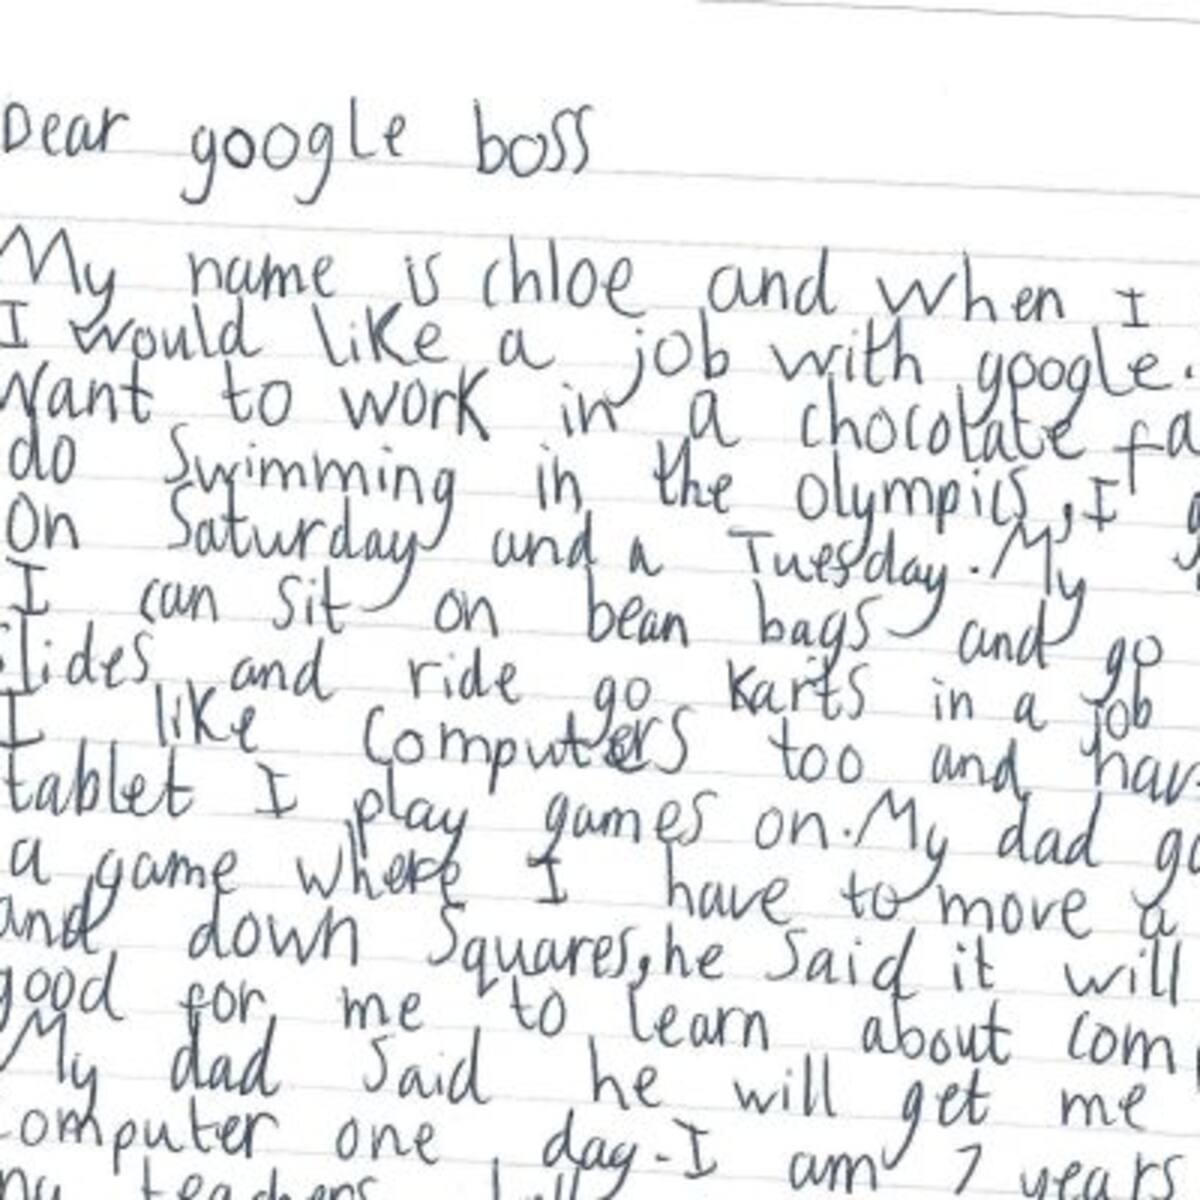 Dear google boss
My name is chloe and when I
I would like a job with google.
Want to work in a chocolate fa
do Swimming in the olympics, I g
On Saturday and a Tuesday. My
I can sit on bean bags and go
slides and ride go karts in a job
I like Computers too and hav
tablet I play games on. My dad ga
a game where I have to move a
and down Squares, he Said it will
good for me to learn about comp
My dad Said he will get me
computer one day. I am 7 years
my teachers